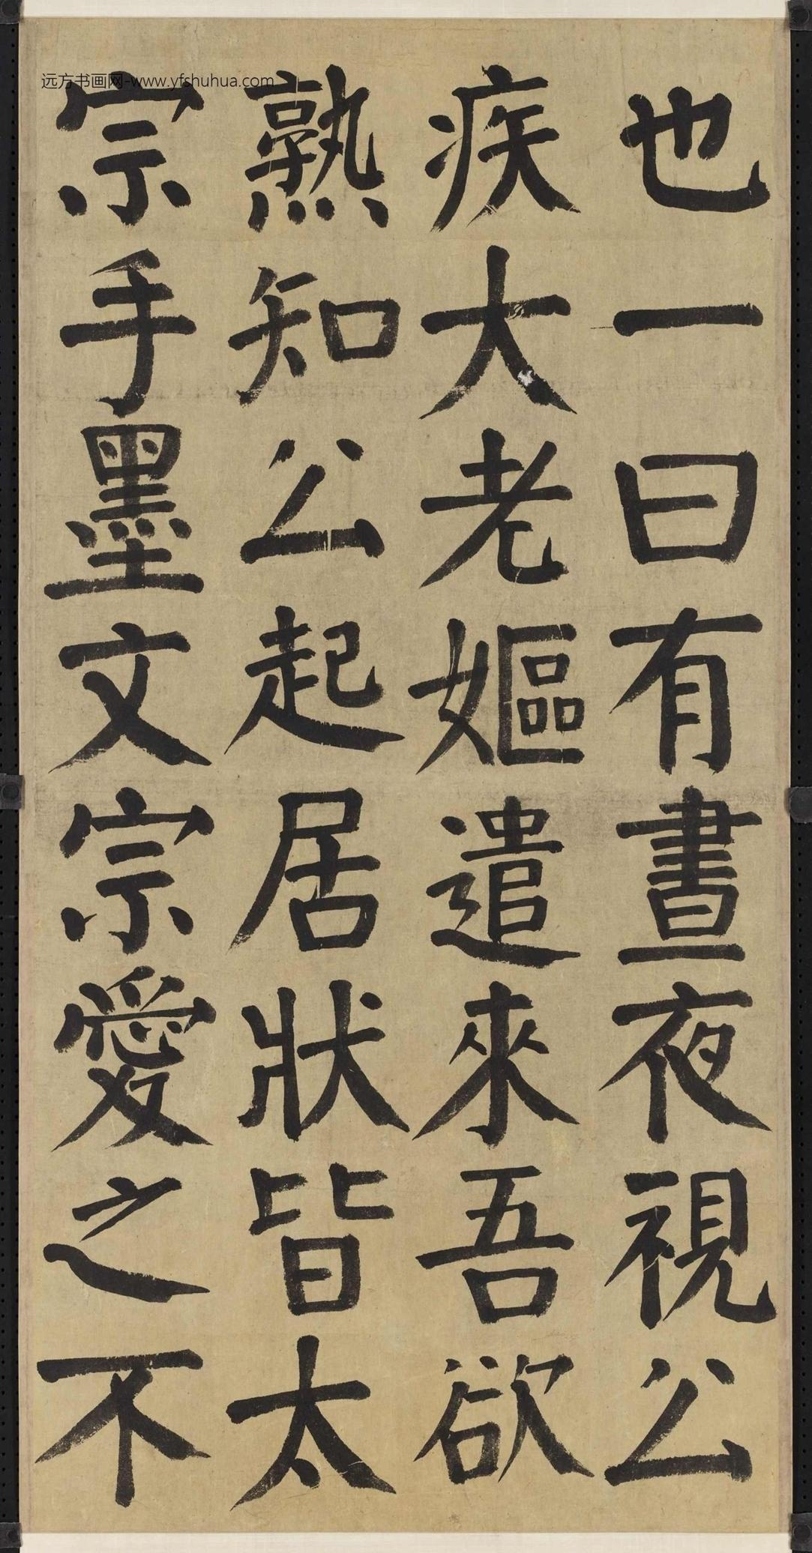 远方书画网-www.yfshuhua.com
也一曰有晝夜視公
疾大老嫗遣來吾欲
熟知公起居狀皆太
宗手墨文宗愛之不